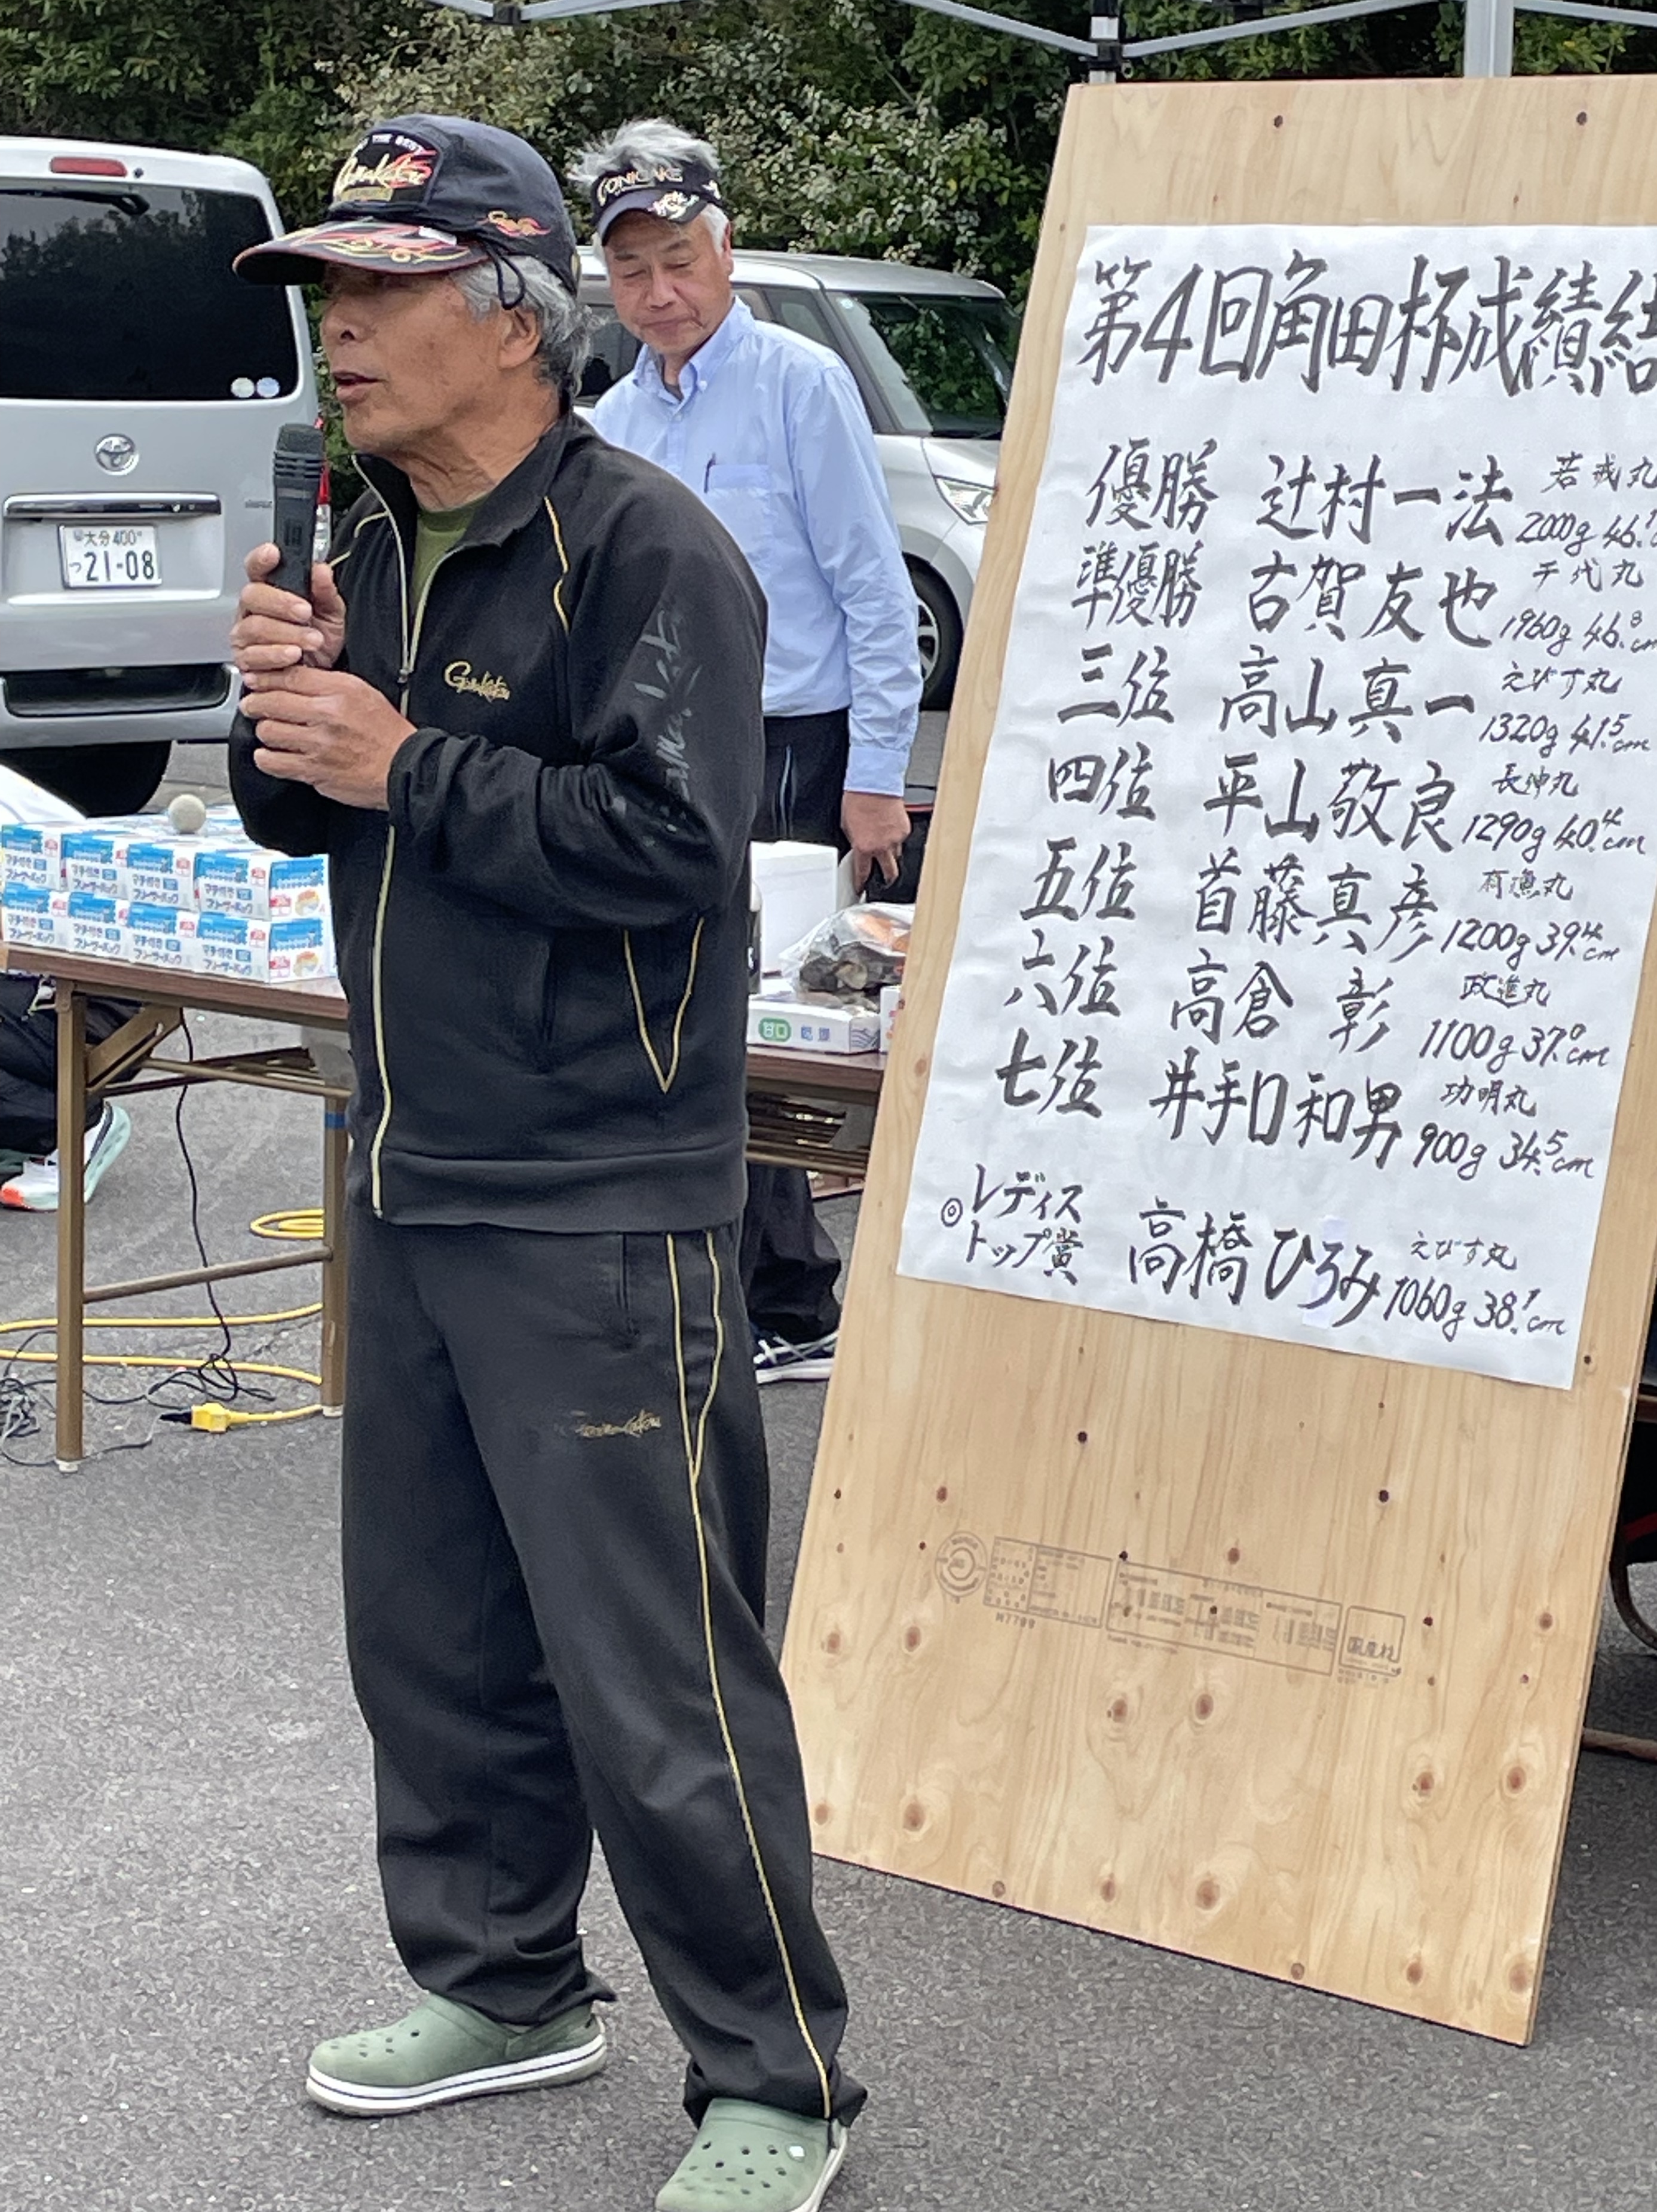 第4回角田杯成績結
優勝 辻村一法 若戎丸 2000g 46.
準優勝 古賀友也 千代丸 1960g 46.8cm
三位 高山真一 えびす丸 1320g 41.5cm
四位 平山敬良 長伸丸 1290g 40.4cm
五位 首藤真彦 有漁丸 1200g 39.4cm
六位 高倉 彰 政進丸 1100g 37.0cm
七位 井手口和男 功明丸 900g 34.5cm
◎レディストップ賞 高橋ひろみ えびす丸 1060g 38.1cm
大分 400
つ 21-08
Gamakatsu
Gamakatsu
マチ付き
フリーザーバッグ
甘口
国産材